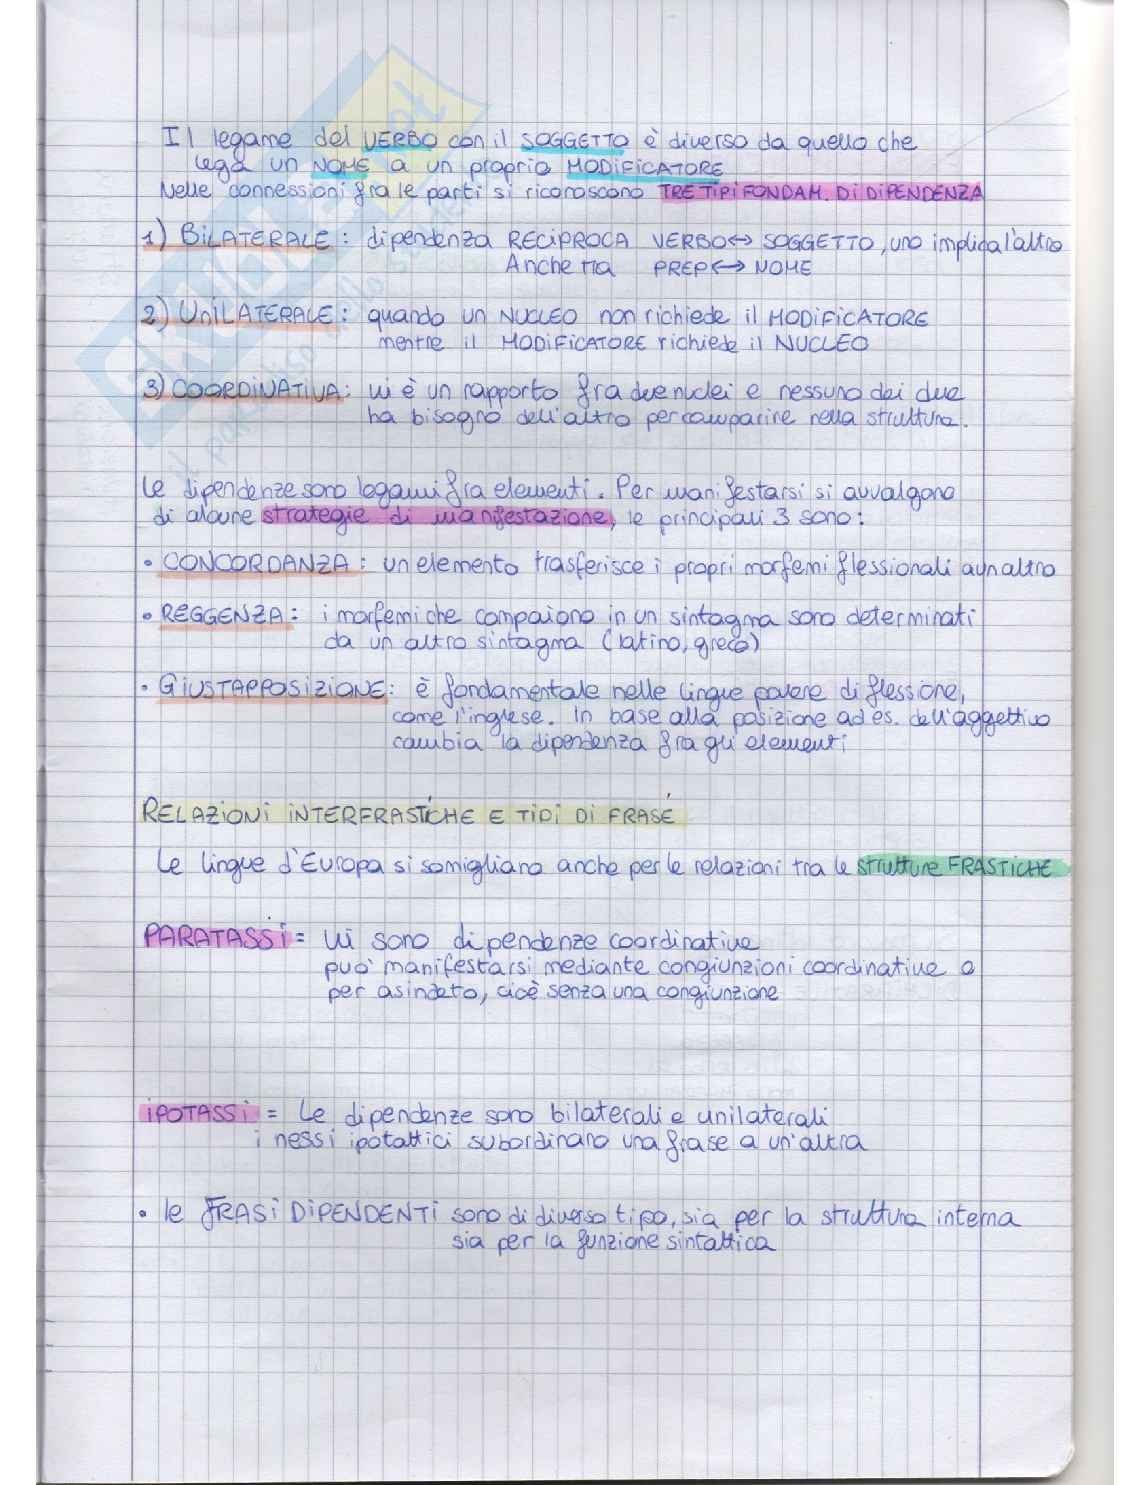 Il legame del VERBO con il SOGGETTO è diverso da quello che
lega un NOME a un proprio MODIFICATORE
Nelle connessioni fra le parti si riconoscono TRE TIPI FONDAM. DI DIPENDENZA
1) BILATERALE: dipendenza RECIPROCA VERBO↔SOGGETTO, uno implica l'altro
Anche tra PREP↔NOME
2) UNILATERALE: quando un NUCLEO non richiede il MODIFICATORE
mentre il MODIFICATORE richiede il NUCLEO
3) COORDINATIVA: vi è un rapporto fra due nuclei e nessuno dei due
ha bisogno dell'altro per comparire nella struttura.
Le dipendenze sono legami fra elementi. Per manifestarsi si avvalgono
di alcune strategie di manifestazione, le principali 3 sono:
• CONCORDANZA: un elemento trasferisce i propri morfemi flessionali a un altro
• REGGENZA: i morfemi che compaiono in un sintagma sono determinati
da un altro sintagma (latino, greco)
• GIUSTAPPOSIZIONE: è fondamentale nelle lingue povere di flessione,
come l'inglese. In base alla posizione ad es. dell'aggettivo
cambia la dipendenza fra gli elementi
RELAZIONI INTERFRASTICHE E TIPI DI FRASE
Le lingue d'Europa si somigliano anche per le relazioni tra le strutture FRASTICHE
PARATASSI = Vi sono dipendenze coordinative
può manifestarsi mediante congiunzioni coordinative o
per asindeto, cioè senza una congiunzione
IPOTASSI = Le dipendenze sono bilaterali e unilaterali
i nessi ipotattici subordinano una frase a un'altra
• le FRASI DIPENDENTI sono di diverso tipo, sia per la struttura interna
sia per la funzione sintattica